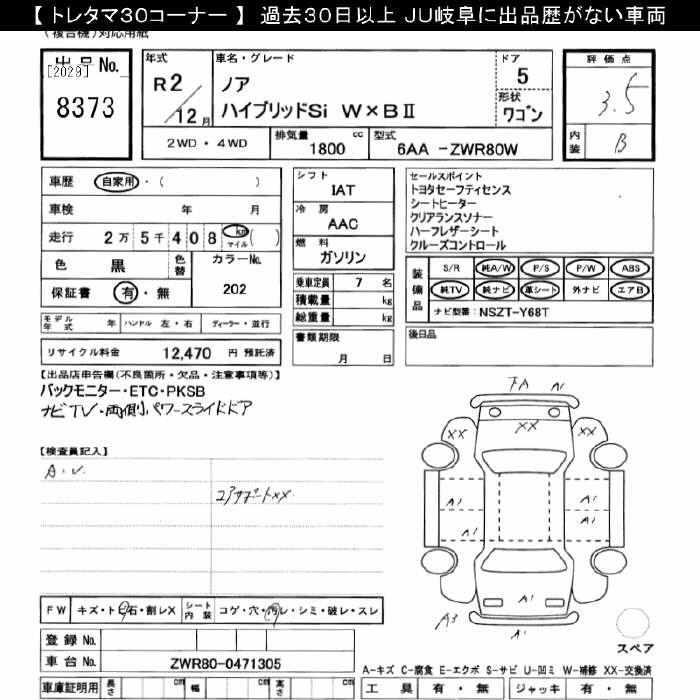 【 トレタマ30コーナー 】 過去30日以上 JU岐阜に出品歴がない車両
(複合機)対応用紙
出品 No.
[2029]
8373
年式
R2/12月
車名・グレード
ノア
ハイブリッドSi W×BⅡ
ドア
5
形状
ワゴン
2WD ・ 4WD
排気量
1800 cc
型式
6AA -ZWR80W
評価点
3.5
内装
B
車歴 自家用 ・( )
車検 年 月
走行 2万5千408 km マイル ( )
色 黒
色替
カラーNo.
202
保証書 有 ・ 無
モデル年式 年 ハンドル 左 ・ 右 ディーラー ・ 並行
リサイクル料金 12,470 円 預託済
シフト
IAT
冷房
AAC
燃料
ガソリン
乗車定員 7 名
積載量 kg
総重量 kg
書類期限
月 日
セールスポイント
トヨタセーフティセンス
シートヒーター
クリアランスソナー
ハーフレザーシート
クルーズコントロール
装備品
S/R 純A/W P/S P/W ABS
純TV 純ナビ 革シート 外ナビ エアB
ナビ型番: NSZT-Y68T
後日品
【出品店申告欄(不良箇所・欠品・注意事項等)】
バックモニター・ETC・PKSB
ナビTV・両側パワースライドドア
【検査員記入】
A・U.
コアサポートXX
FW キズ・ト石・割レX
シート内装 コゲ・穴・汚レ・シミ・破レ・スレ
登録 No.
車台 No. ZWR80-0471305
車庫証明用 長さ cm 幅 cm 高さ cm
FA A1
XX XX XX
A1 A1
A1 A1
A1
A3 A1
スペア
A-キズ C-腐食 E-エクボ S-サビ U-凹ミ W-補修 XX-交換済
工具 有 ・ 無 ジャッキ 有 ・ 無